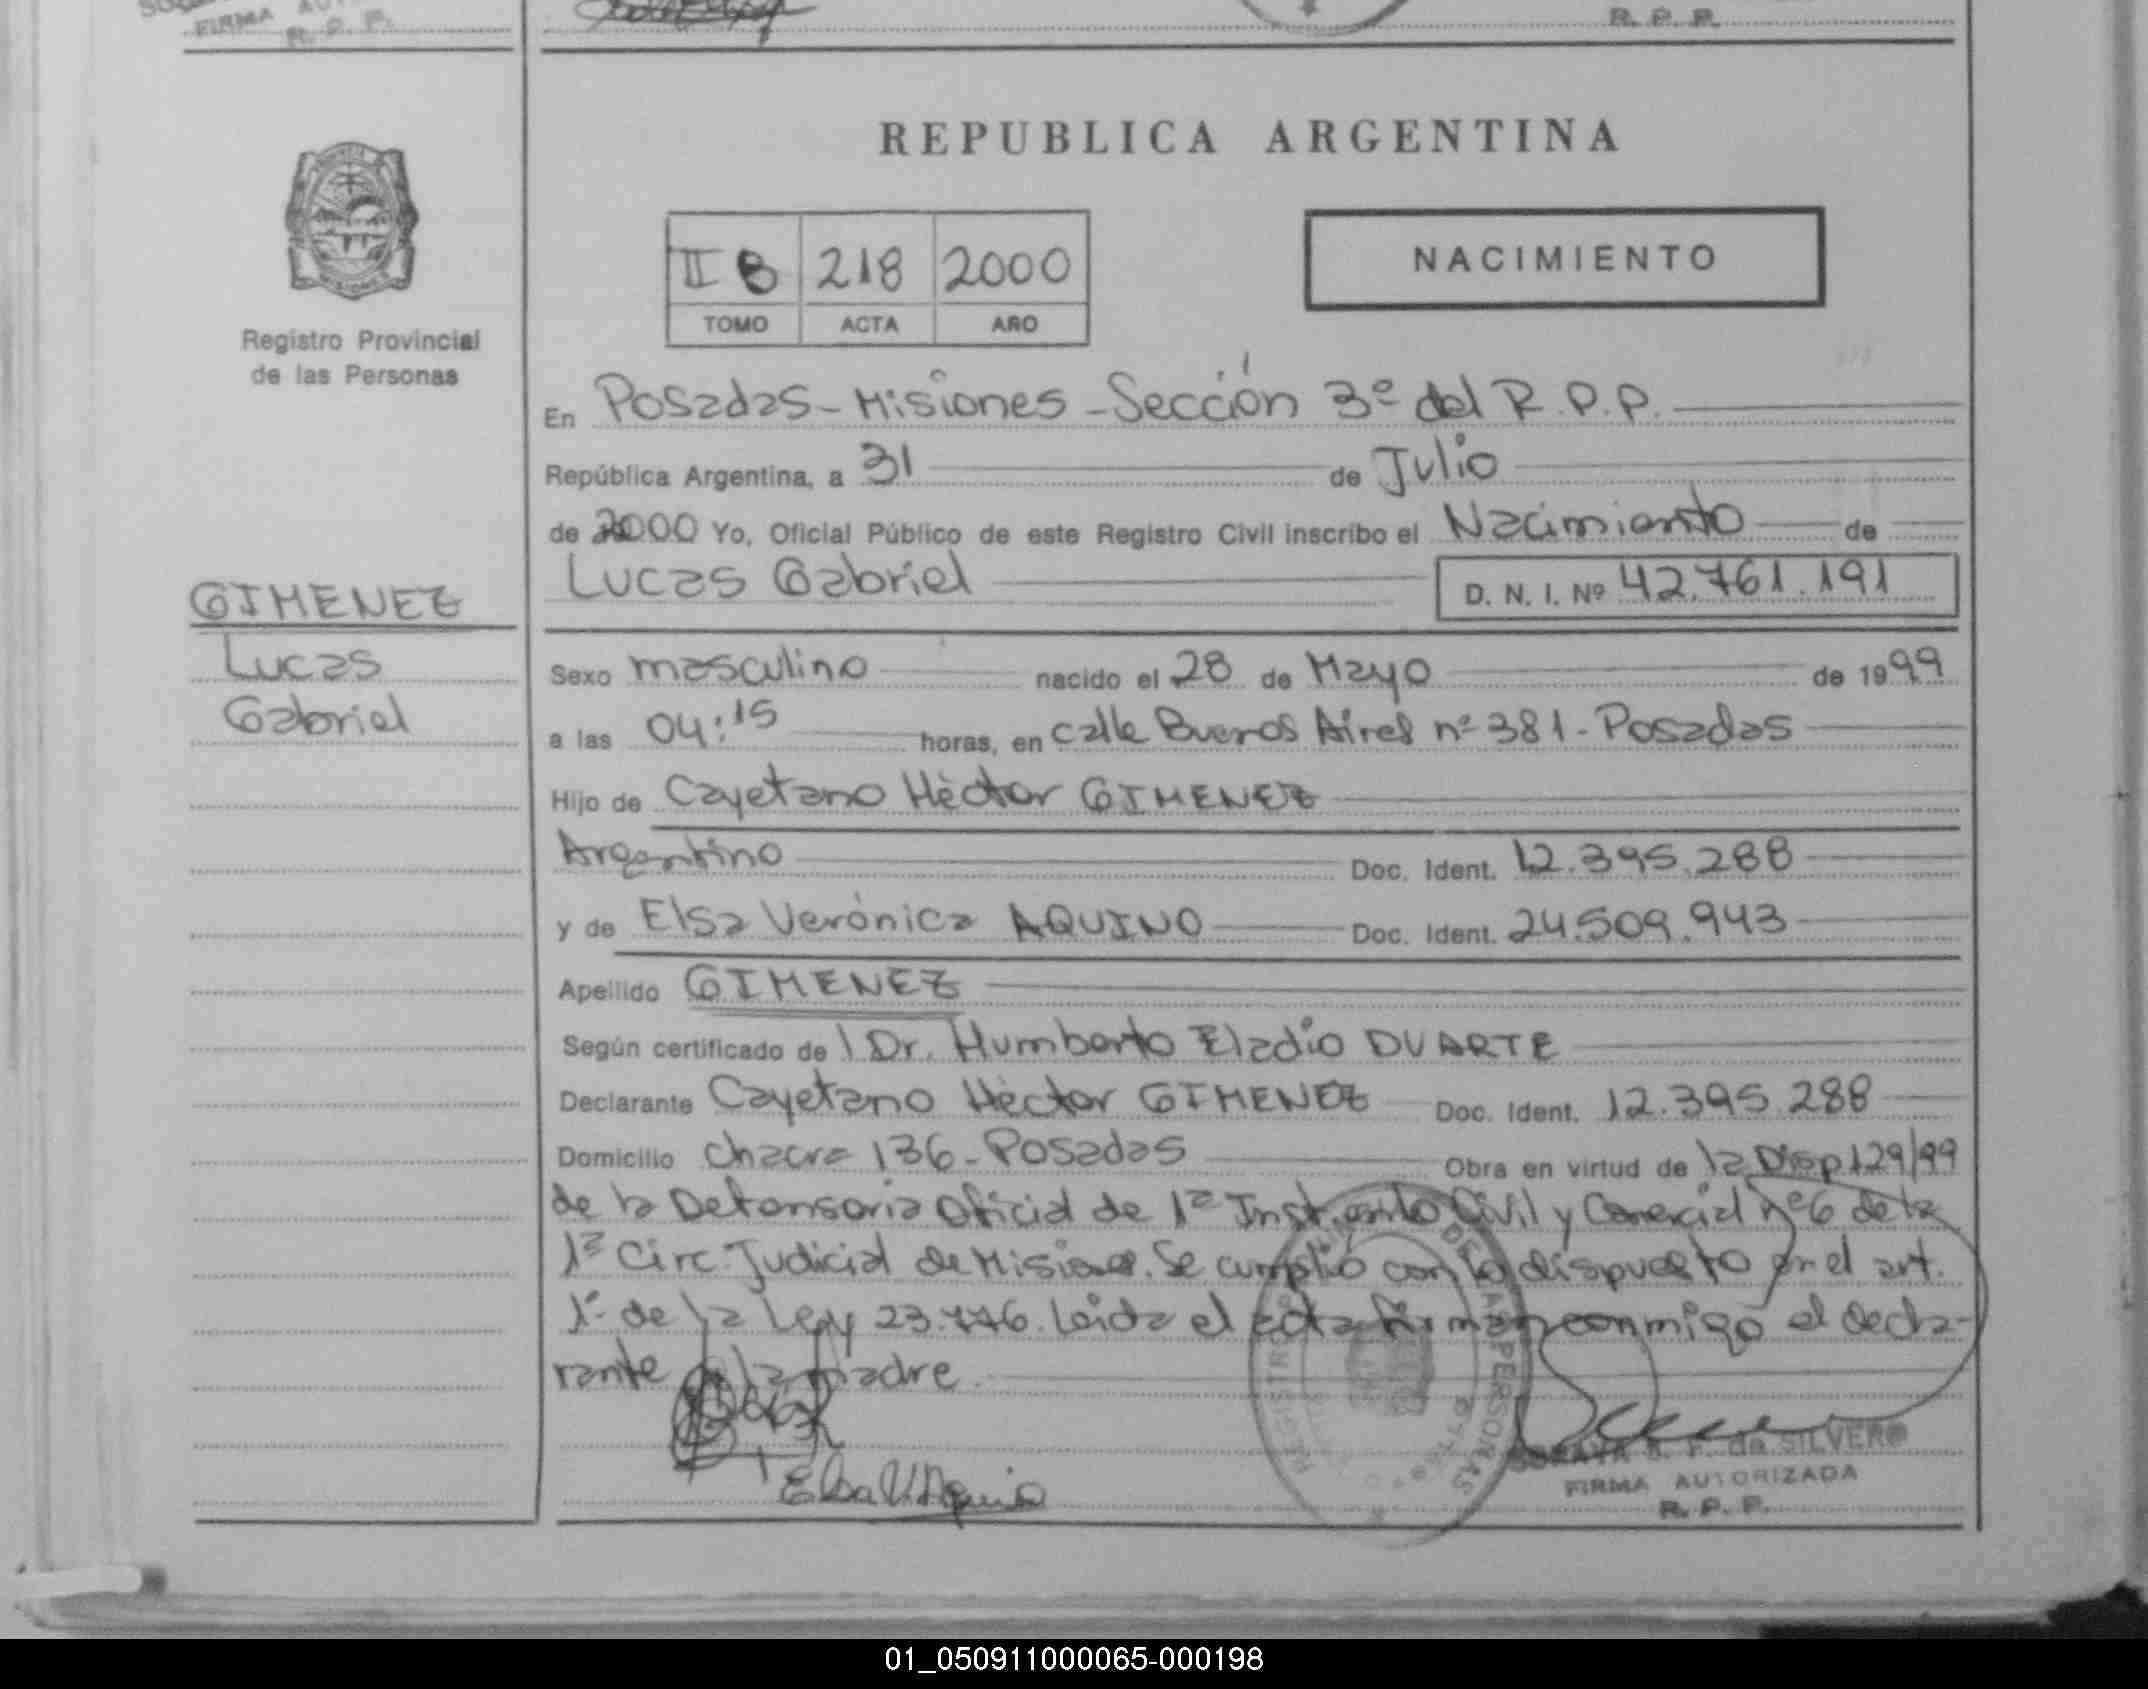 FIRMA
R. P. P.
R. P. P.
REPUBLICA ARGENTINA
II B 218 2000
TOMO ACTA AÑO
NACIMIENTO
Registro Provincial
de las Personas
En Posadas - Misiones - Sección 3º del R.P.P.
República Argentina, a 31 de Julio
de 2000 Yo, Oficial Público de este Registro Civil inscribo el Nacimiento de
Lucas Gabriel D. N. I. Nº 42.761.191
GIMENEZ
Lucas
Gabriel
Sexo masculino nacido el 28 de Mayo de 1999
a las 04:15 horas, en calle Buenos Aires nº 381 - Posadas
Hijo de Cayetano Héctor GIMENEZ
Argentino Doc. Ident. 12.395.288
y de Elsa Verónica AQUINO Doc. Ident. 24.509.943
Apellido GIMENEZ
Según certificado de l Dr. Humberto Eladio DUARTE
Declarante Cayetano Héctor GIMENEZ Doc. Ident. 12.395.288
Domicilio Chacra 136 - Posadas Obra en virtud de la Disp 129/99
de la Defensoria Oficial de 1ª Inst. en lo Civil y Comercial nº 6 de la
1ª Circ. Judicial de Misiones. Se cumplió con lo dispuesto en el art.
1º de la Ley 23.776. Leida el acta firman conmigo el decla-
rante y la madre.
Elsa V. Aquino
REGISTRO DE LAS PERSONAS
S. F. de SILVERO
FIRMA AUTORIZADA
R. P. P.
01_050911000065-000198